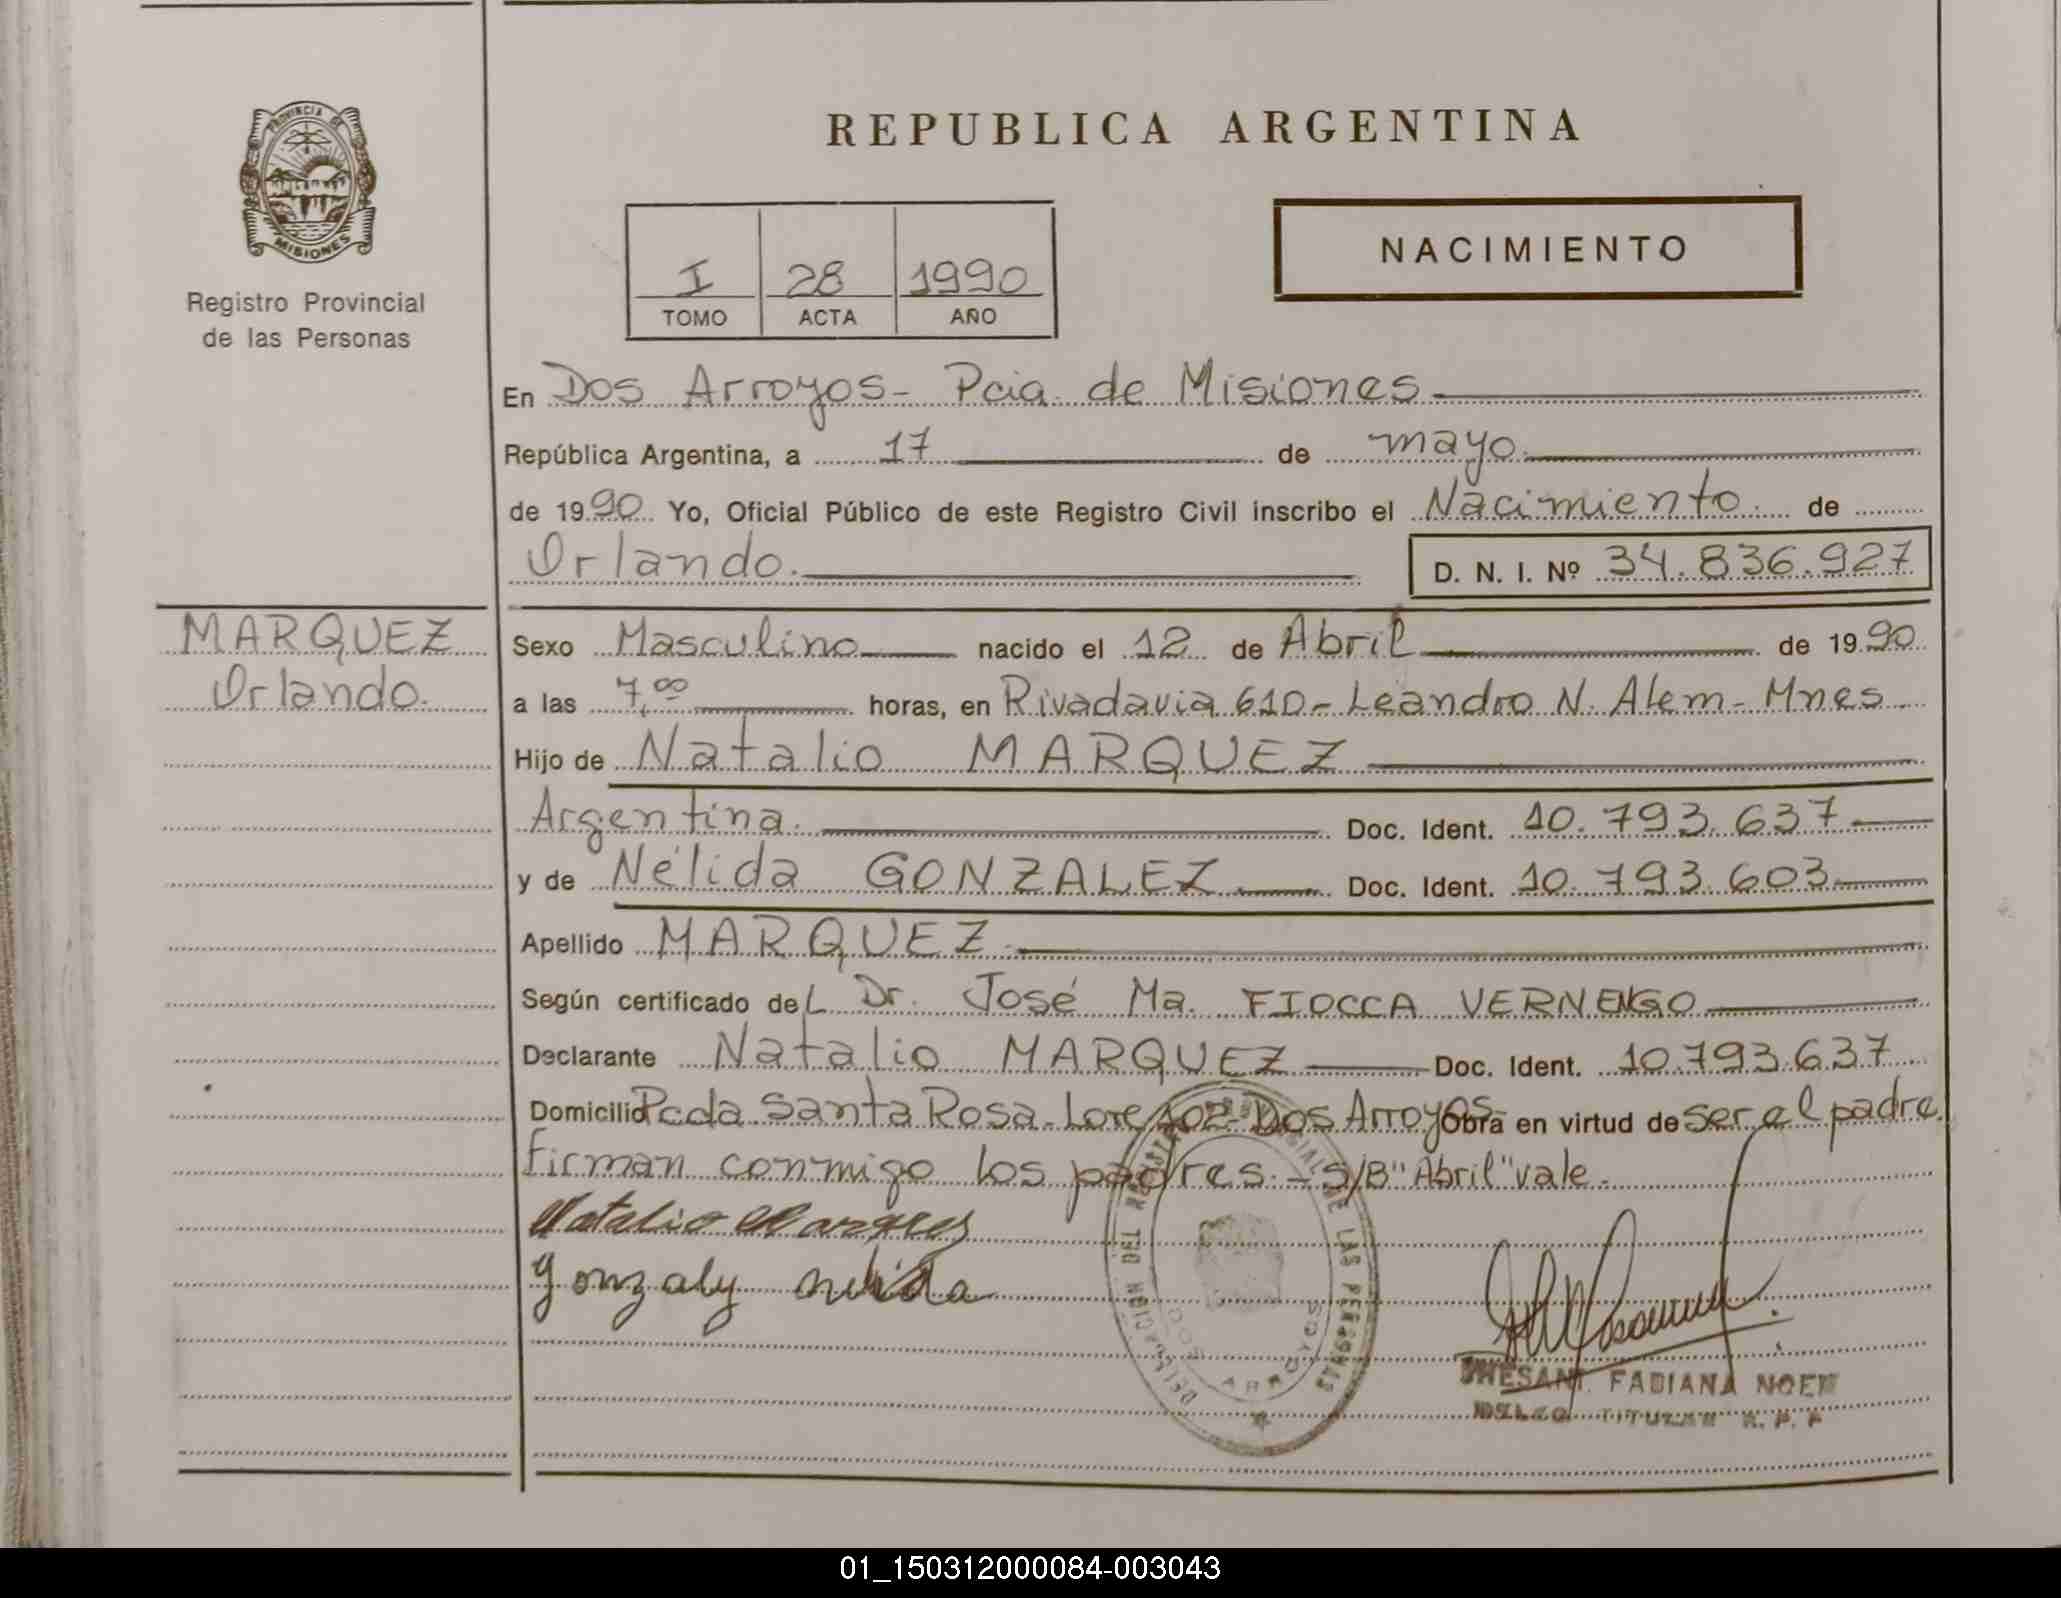 PROVINCIA DE
MISIONES
Registro Provincial
de las Personas
REPUBLICA ARGENTINA
I 28 1990
TOMO ACTA AÑO
NACIMIENTO
En Dos Arroyos - Pcia de Misiones
República Argentina, a 17 de mayo
de 1990 Yo, Oficial Público de este Registro Civil inscribo el Nacimiento de
Orlando. D. N. I. Nº 34.836.927
MARQUEZ
Orlando.
Sexo Masculino nacido el 12 de Abril de 1990
a las 7,00 horas, en Rivadavia 610 - Leandro N. Alem - Mnes
Hijo de Natalio MARQUEZ
Argentina. Doc. Ident. 10.793.637
y de Nélida GONZALEZ Doc. Ident. 10.793.603
Apellido MARQUEZ
Según certificado del Dr. José Ma. FIOCCA VERNENGO
Declarante Natalio MARQUEZ Doc. Ident. 10.793.637
Domicilio Pcda Santa Rosa - Lote 102 - Dos Arroyos - Obra en virtud de ser el padre.
Firman conmigo los padres. - S/B "Abril" vale.
Natalio Marques
Gonzaly nelida
DELEGACION DEL REGISTRO PROVINCIAL DE LAS PERSONAS
DOS ARROYOS
FABIANA NOEMI
TITULAR R. P. P
01_150312000084-003043